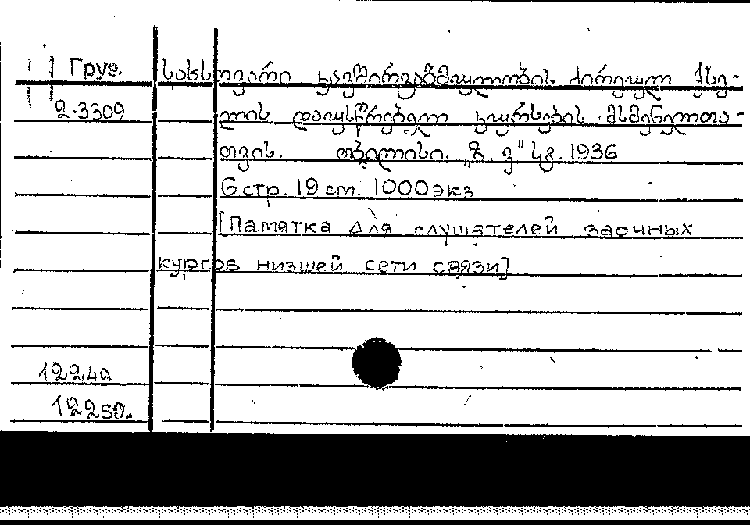 Груз. სახსოვარი კავშირგაბმულობის პირველ ქსე-
2.3309 ლის დაუსწრებელ კურსების მსმენელთა-
თვის. თბილისი. „ზ. ვ" სტ. 1936
6 стр. 19 cm. 1000 экз
[Памятка для слушателей заочных
курсов низшей сети связи]
1224а
1225а.